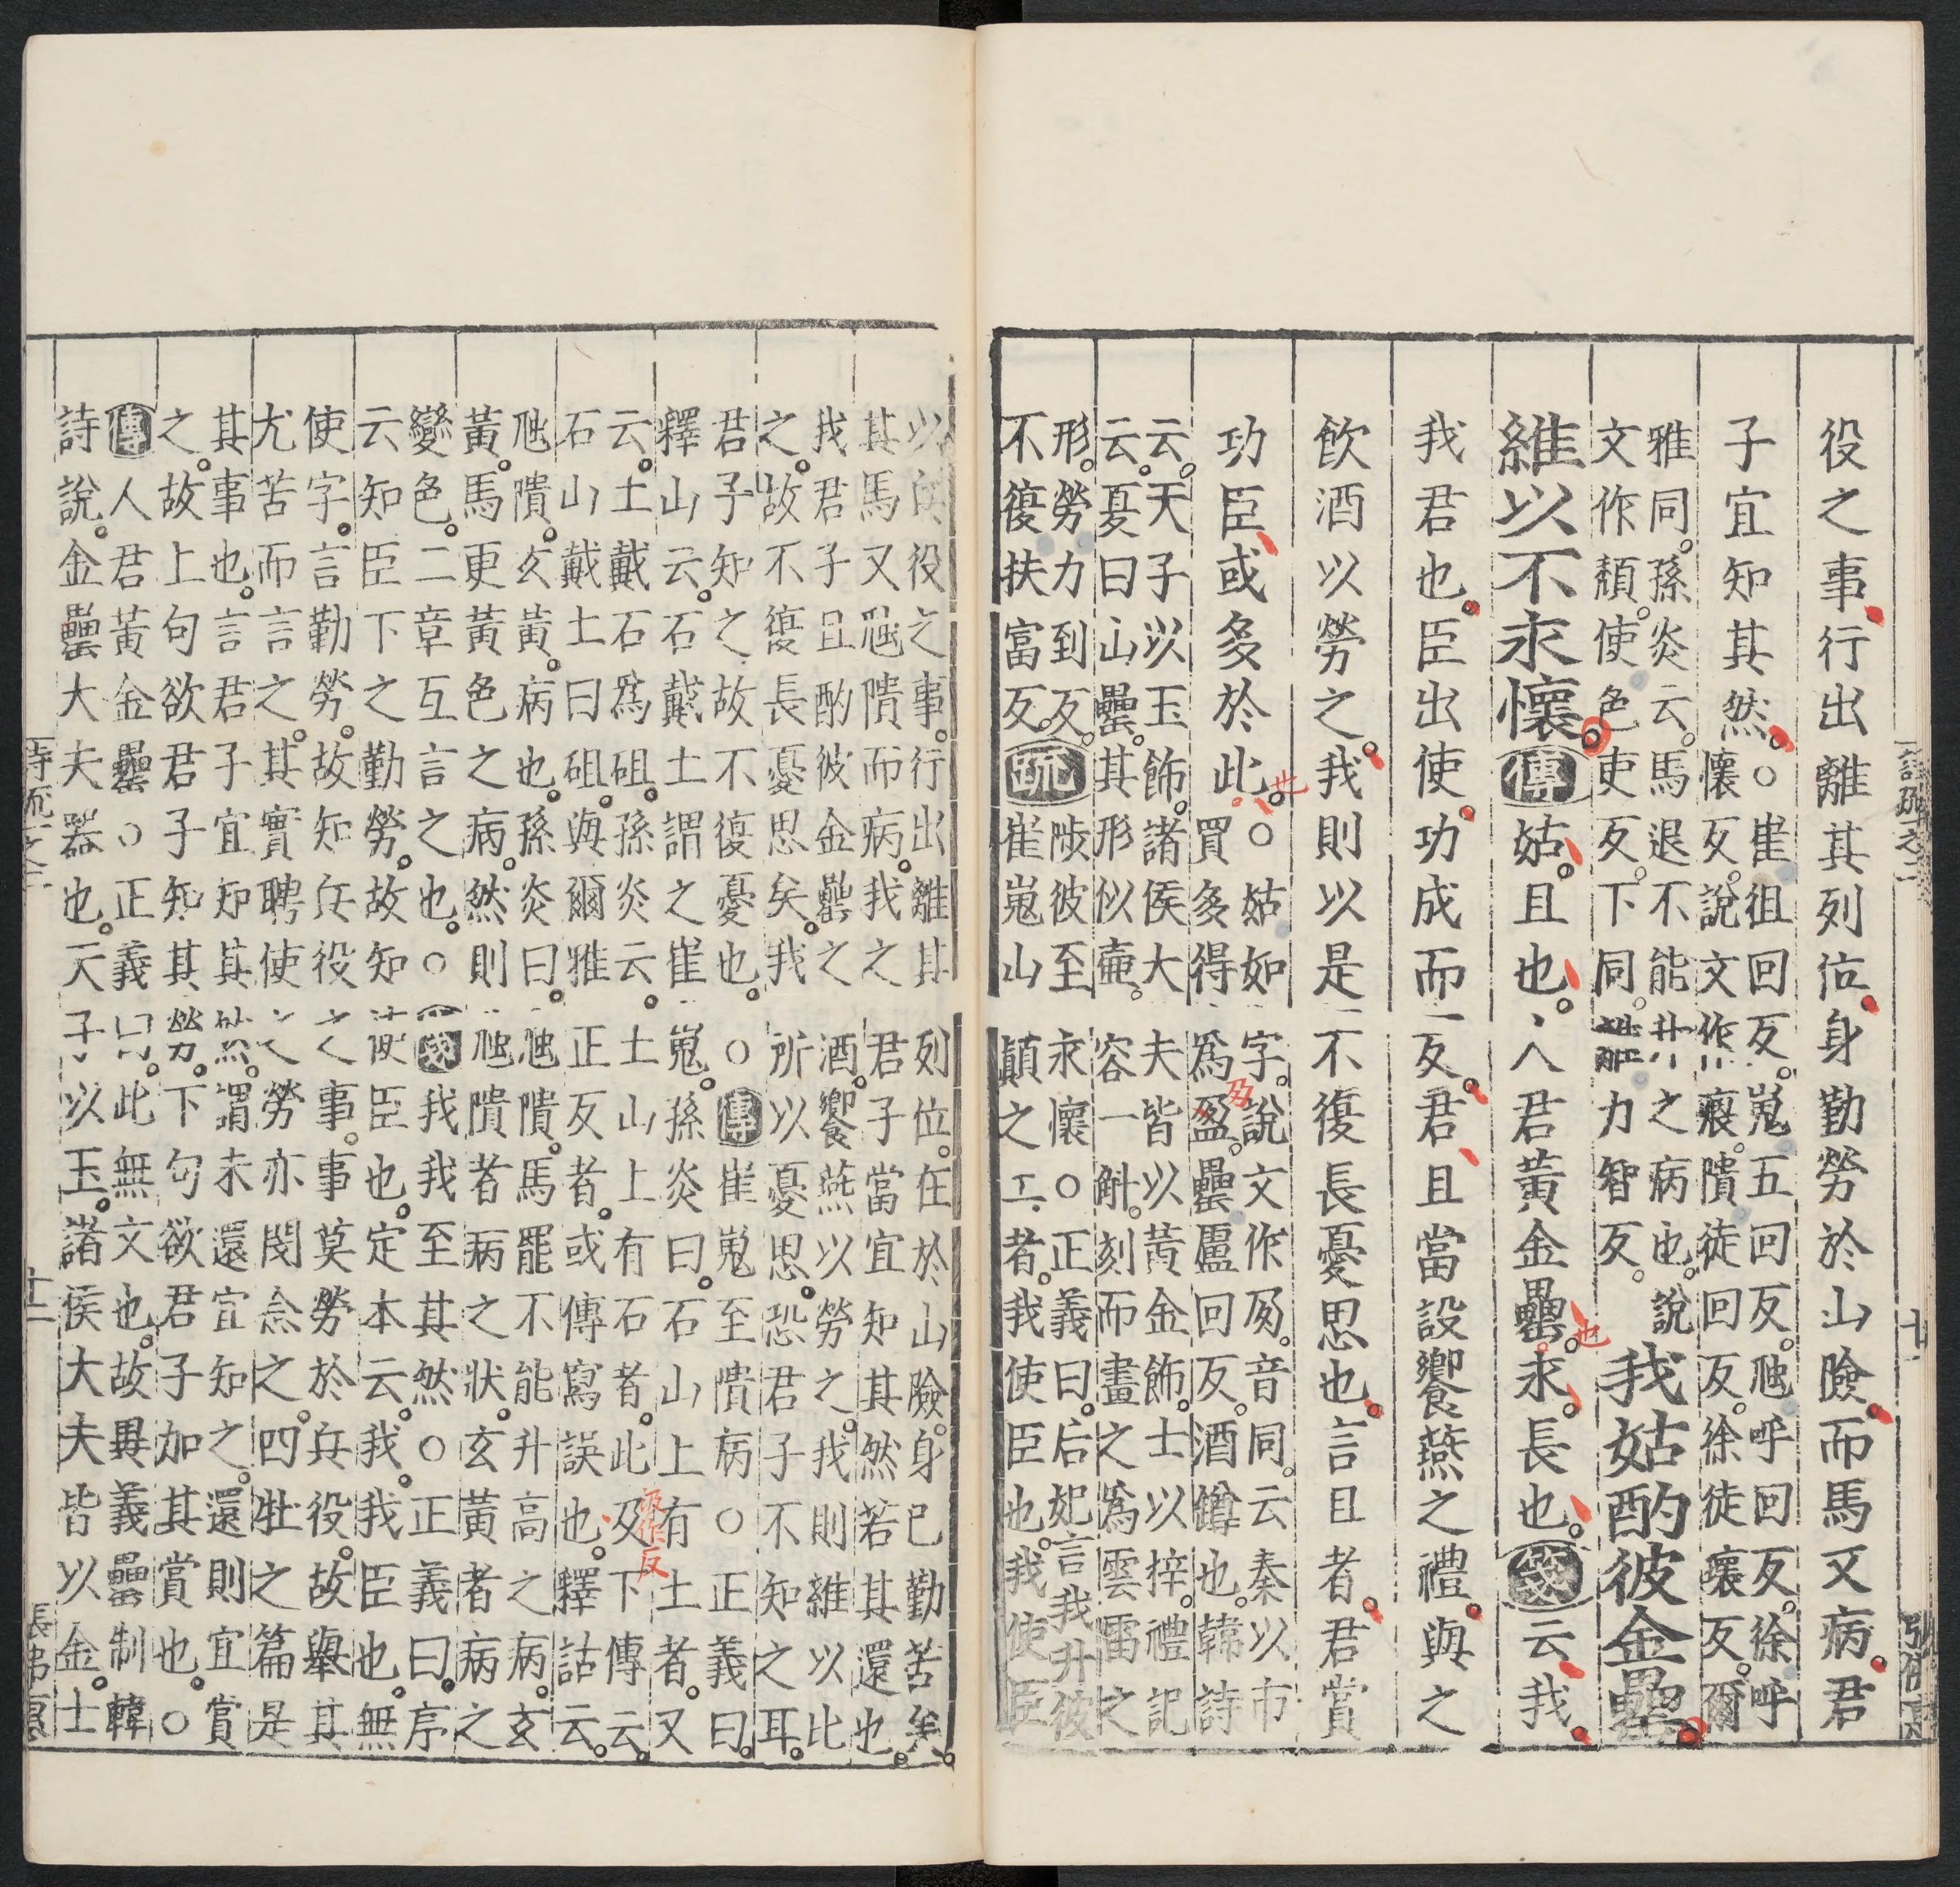 役之事行出離其列位身勤勞於山險而馬又病君
子宜知其然○崔徂回反嵬五回反虺呼回反徐呼
懷反說文作瘣隤徒回反徐徒瓌反爾
雅同孫炎云馬退不能升之病也說
文作頽使色吏反下同 力智反我姑酌彼金罍
維以不永懷傳姑且也人君黃金罍永長也箋云我
我君也臣出使功成而反君且當設饗燕之禮與之
飲酒以勞之我則以是不復長憂思也言且者君賞
功臣或多於此○姑如字說文作夃音同云秦以市
買多得為盈罍盧回反酒罇也韓詩
云天子以玉飾諸侯大夫皆以黃金飾士以梓禮記
云夏曰山罍其形似壷容一斛刻而畫之為雲雷之
形勞力到反
不復扶富反疏陟彼至永懷○正義曰后妃言我升彼
崔嵬山顛之上者我使臣也我使臣
以兵役之事行出離其列位在於山險身已勤苦矣
其馬又虺隤而病我之君子當宜知其然若其還也
我君子且酌彼金罍之酒饗燕以勞之我則維以比
之故不復長憂思矣我所以憂思恐君子不知之耳
君子知之故不復憂也○傳崔嵬至隤病○正義曰
釋山云石戴土謂之崔嵬孫炎曰石山上有土者又
云土戴石為砠孫炎云土山上有石者此及下傳云
石山戴土曰砠與爾雅正反者或傳寫誤也釋詁云
虺隤玄黃病也孫炎曰虺隤馬罷不能升高之病玄
黃馬更黃色之病然則虺隤者病之狀玄黃者病之
變色二章互言之也○箋我我至其然○正義曰序
云知臣下之勤勞故知使臣也定本云我我臣也無
使字言勤勞故知兵役之事事莫勞於兵役故舉其
尤苦而言之其實聘使之勞亦閔念之四牡之篇是
其事也言君子宜知其然謂未還宜知之還則宜賞
之故上句欲君子知其勞下句欲君子加其賞也○
傳人君黃金罍○正義曰此無文也故異義罍制韓
詩說金罍大夫器也天子以玉諸侯大夫皆以金士